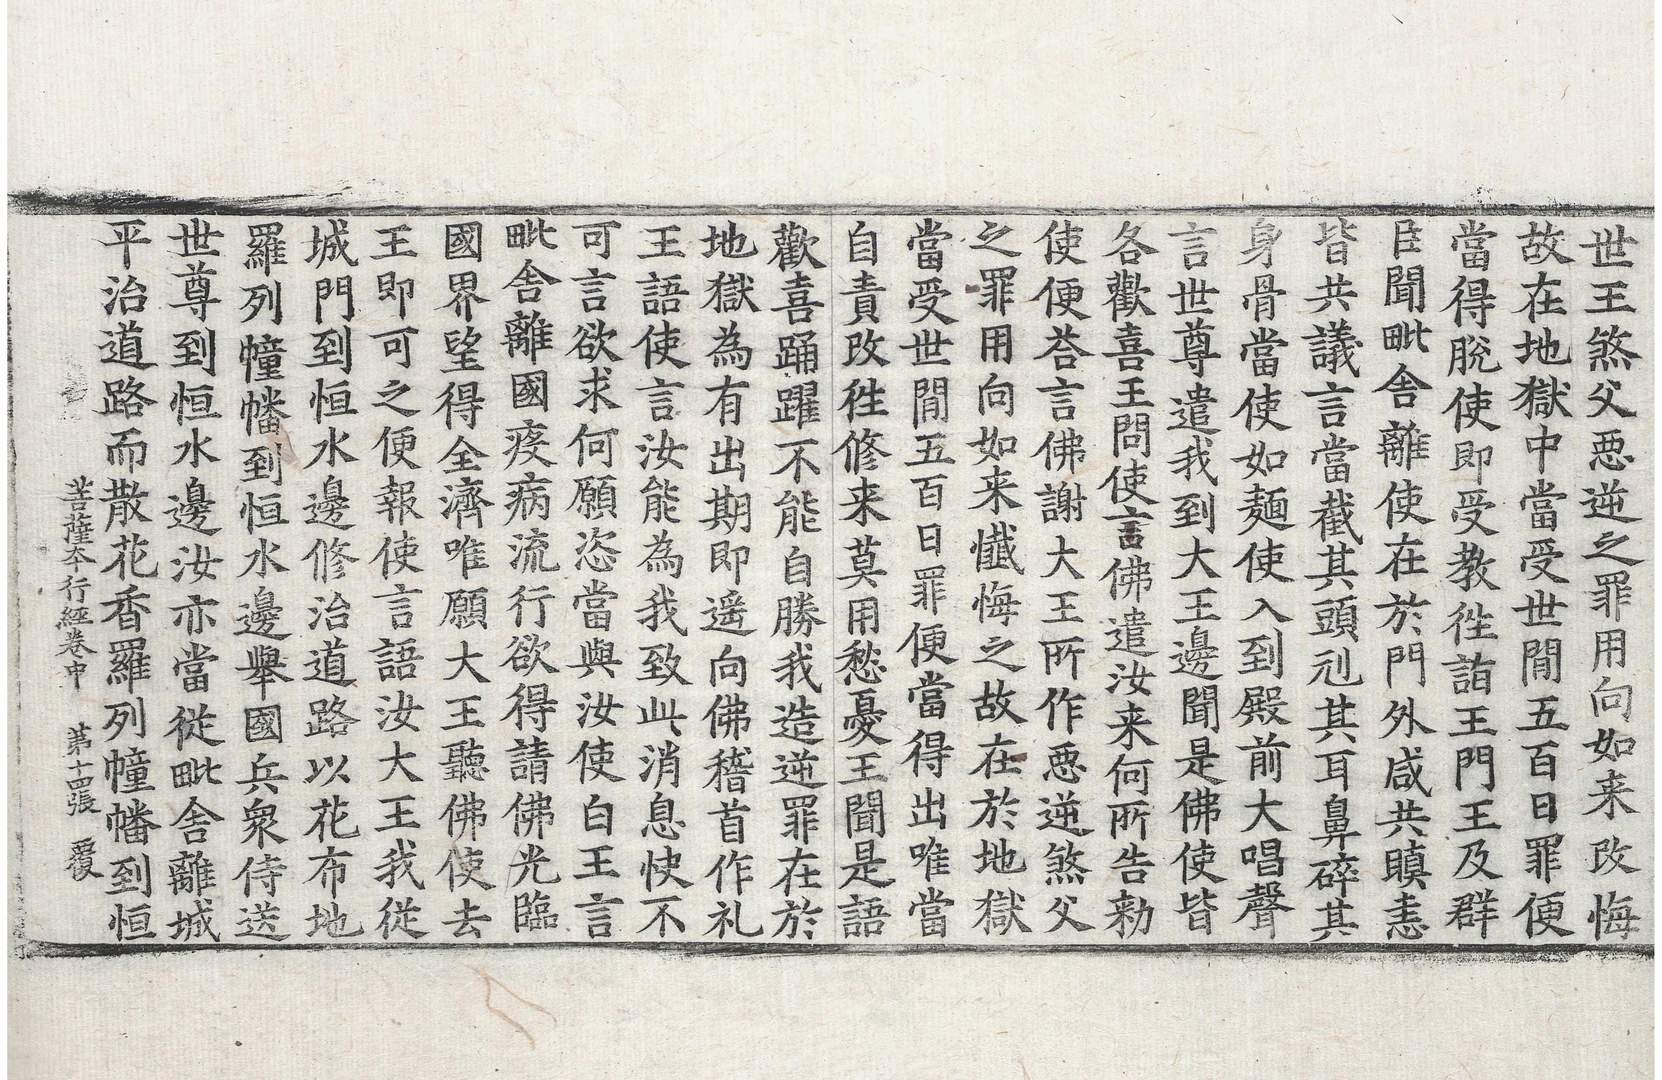 世王煞父惡逆之罪用向如来改悔
故在地獄中當受世閒五百日罪便
當得脫使即受教徃詣王門王及群
臣聞毗舍離使在於門外咸共瞋恚
皆共議言當截其頭刵其耳鼻碎其
身骨當使如麵使入到殿前大唱聲
言世尊遣我到大王邊聞是佛使皆
各歡喜王問使言佛遣汝来何所告勑
使便荅言佛謝大王所作惡逆煞父
之罪用向如来懺悔之故在於地獄
當受世閒五百日罪便當得出唯當
自責改徃修来莫用愁憂王聞是語
歡喜踊躍不能自勝我造逆罪在於
地獄為有出期即遥向佛稽首作礼
王語使言汝能為我致此消息快不
可言欲求何願恣當與汝使白王言
毗舍離國疫病流行欲得請佛光臨
國界望得全濟唯願大王聽佛使去
王即可之便報使言語汝大王我從
城門到恒水邊修治道路以花布地
羅列幢幡到恒水邊舉國兵衆侍送
世尊到恒水邊汝亦當從毗舍離城
平治道路而散花香羅列幢幡到恒
菩薩夲行經卷中　第十四張　覆